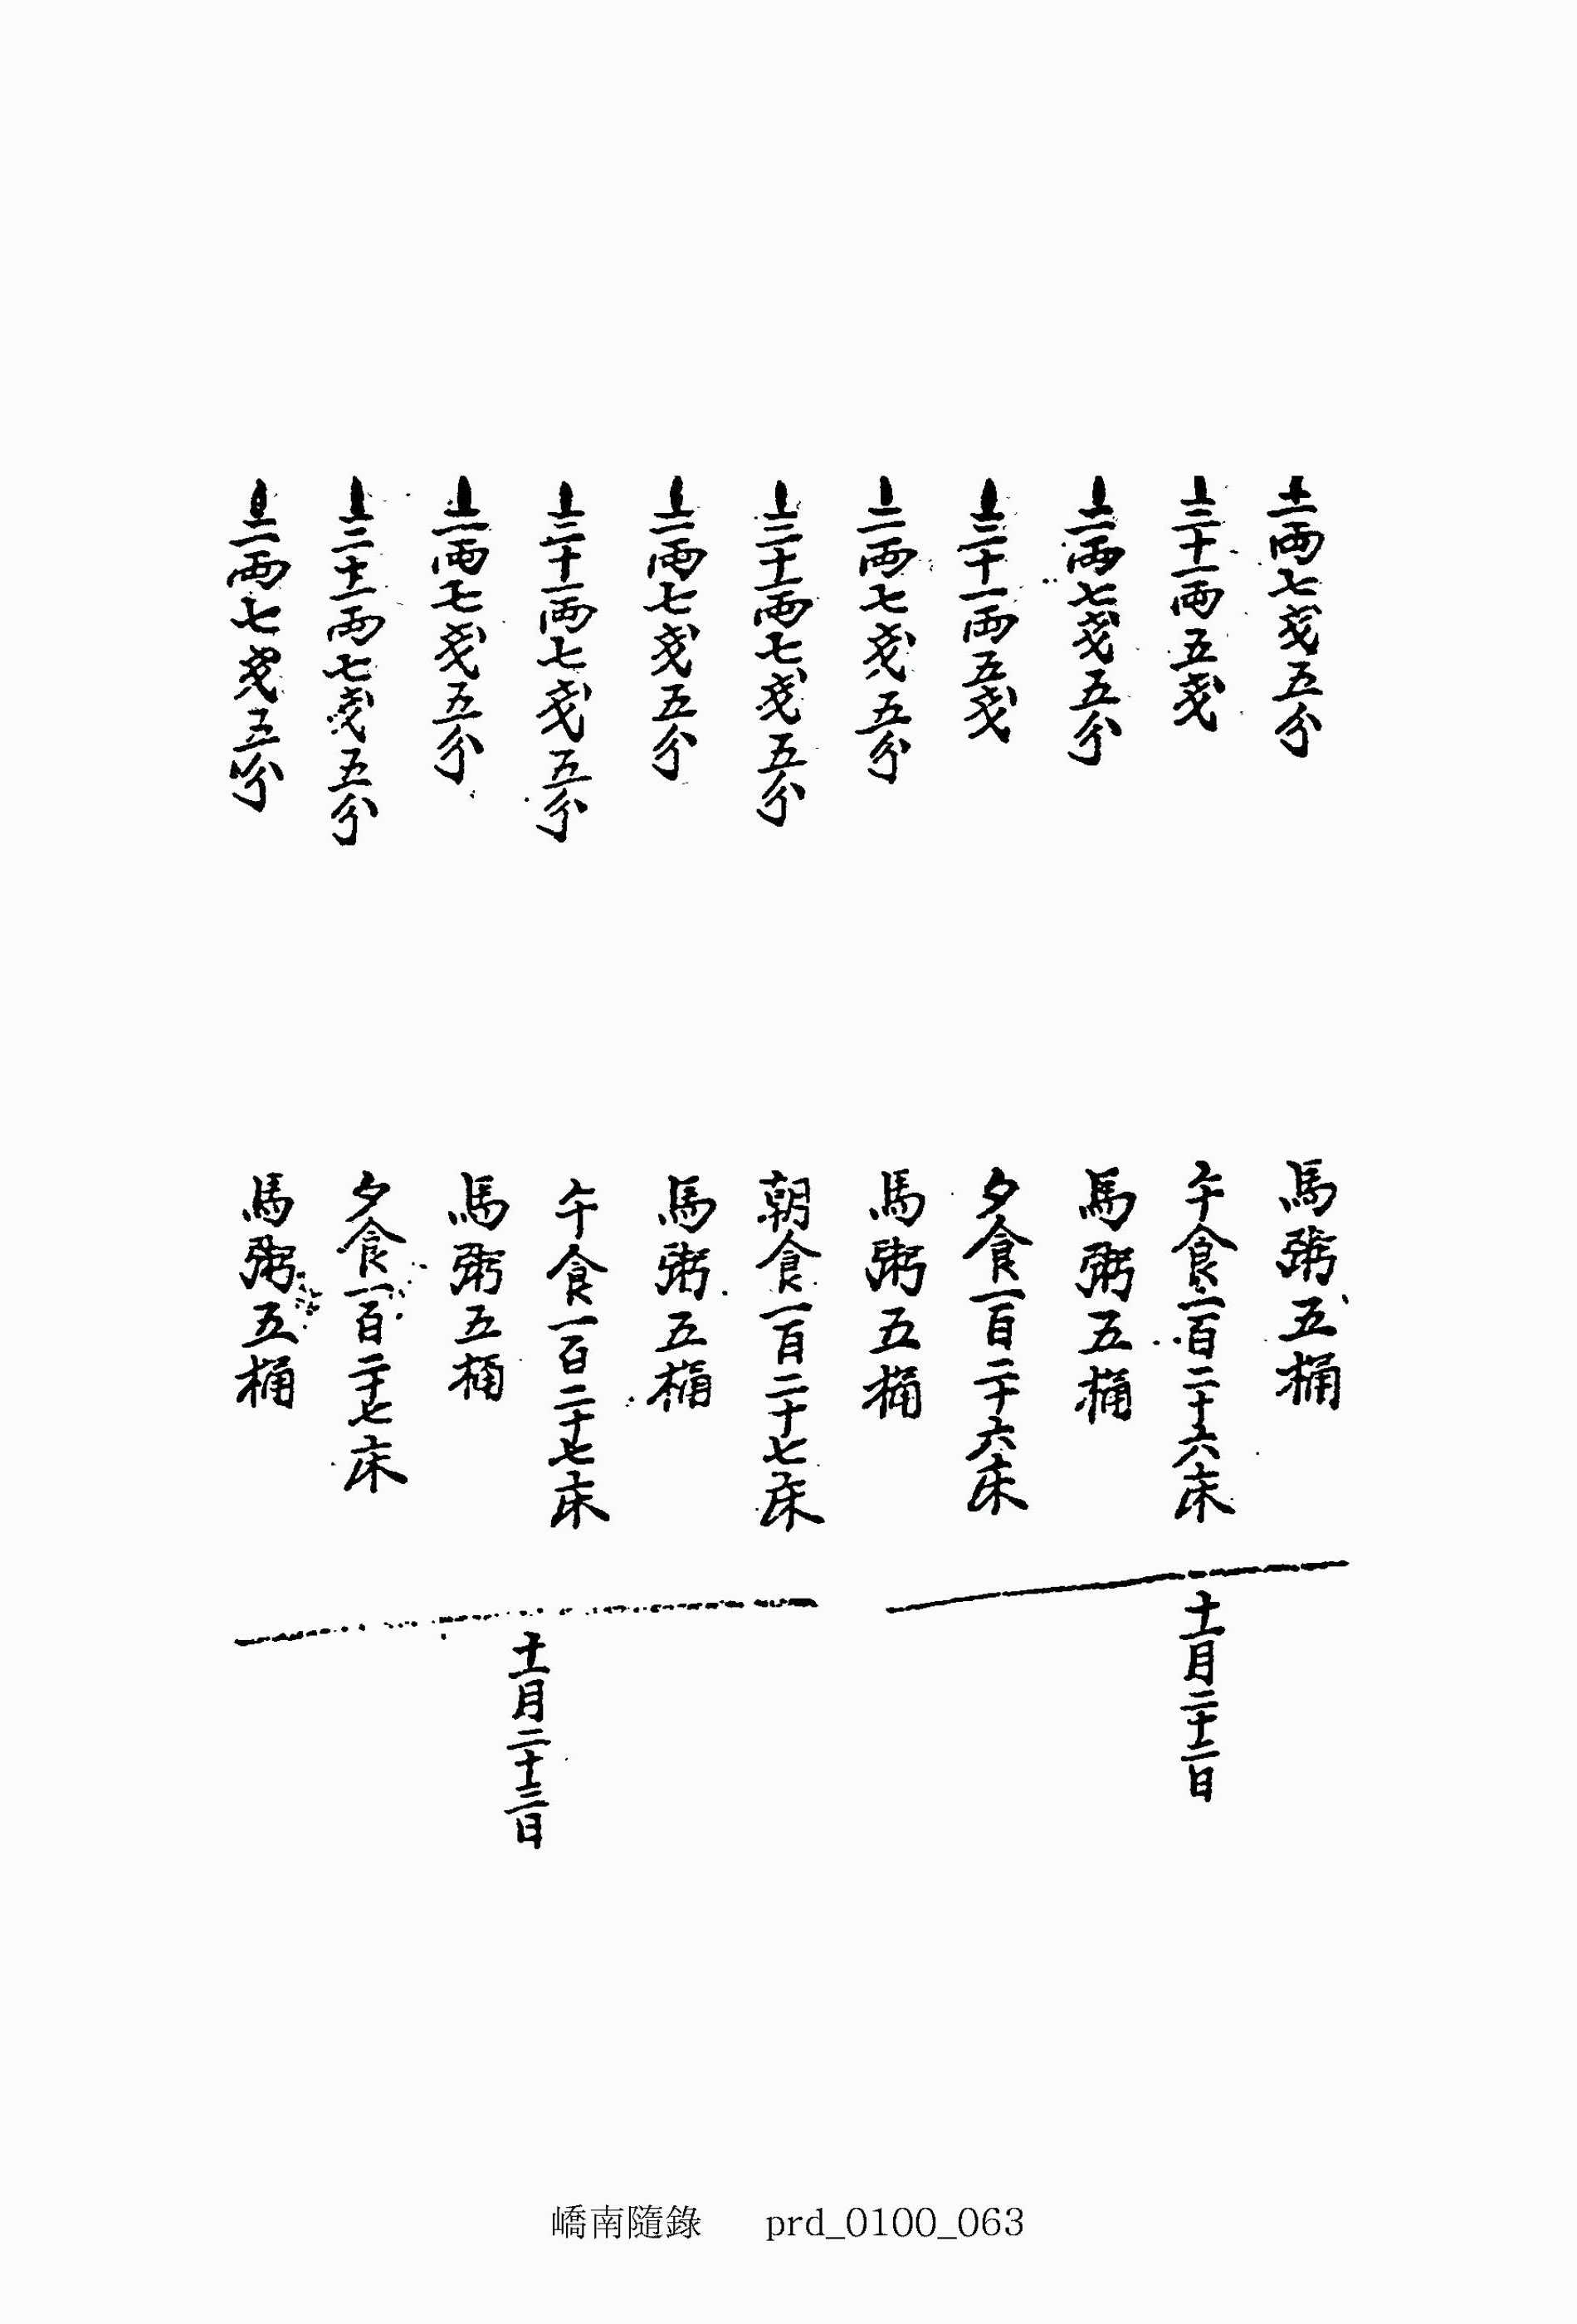 上二両七戔五分
馬粥五桶
上三十一両五戔
午食一百二十六床
上二両七戔五分
馬粥五桶
上三十一両五戔
夕食一百二十六床
上二両七戔五分
馬粥五桶
十一月二十二日
上三十一両七戔五分
朝食一百二十七床
上二両七戔五分
馬粥五桶
上三十一両七戔五分
午食一百二十七床
上二両七戔五分
馬粥五桶
上三十一両七戔五分
夕食一百二十七床
上二両七戔五分
馬粥五桶
十一月二十三日
嶠南隨錄 prd_0100_063